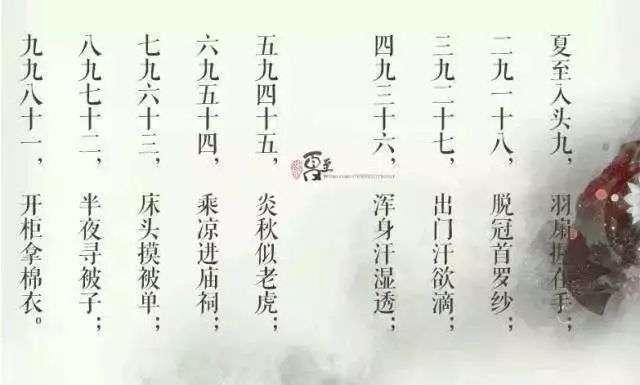 夏至入头九，羽扇握在手；
二九一十八，脱冠首罗纱；
三九二十七，出门汗欲滴；
四九三十六，浑身汗湿透；
夏至
五九四十五，炎秋似老虎；
六九五十四，乘凉进庙祠；
七九六十三，床头摸被单；
八九七十二，半夜寻被子；
九九八十一，开柜拿棉衣。